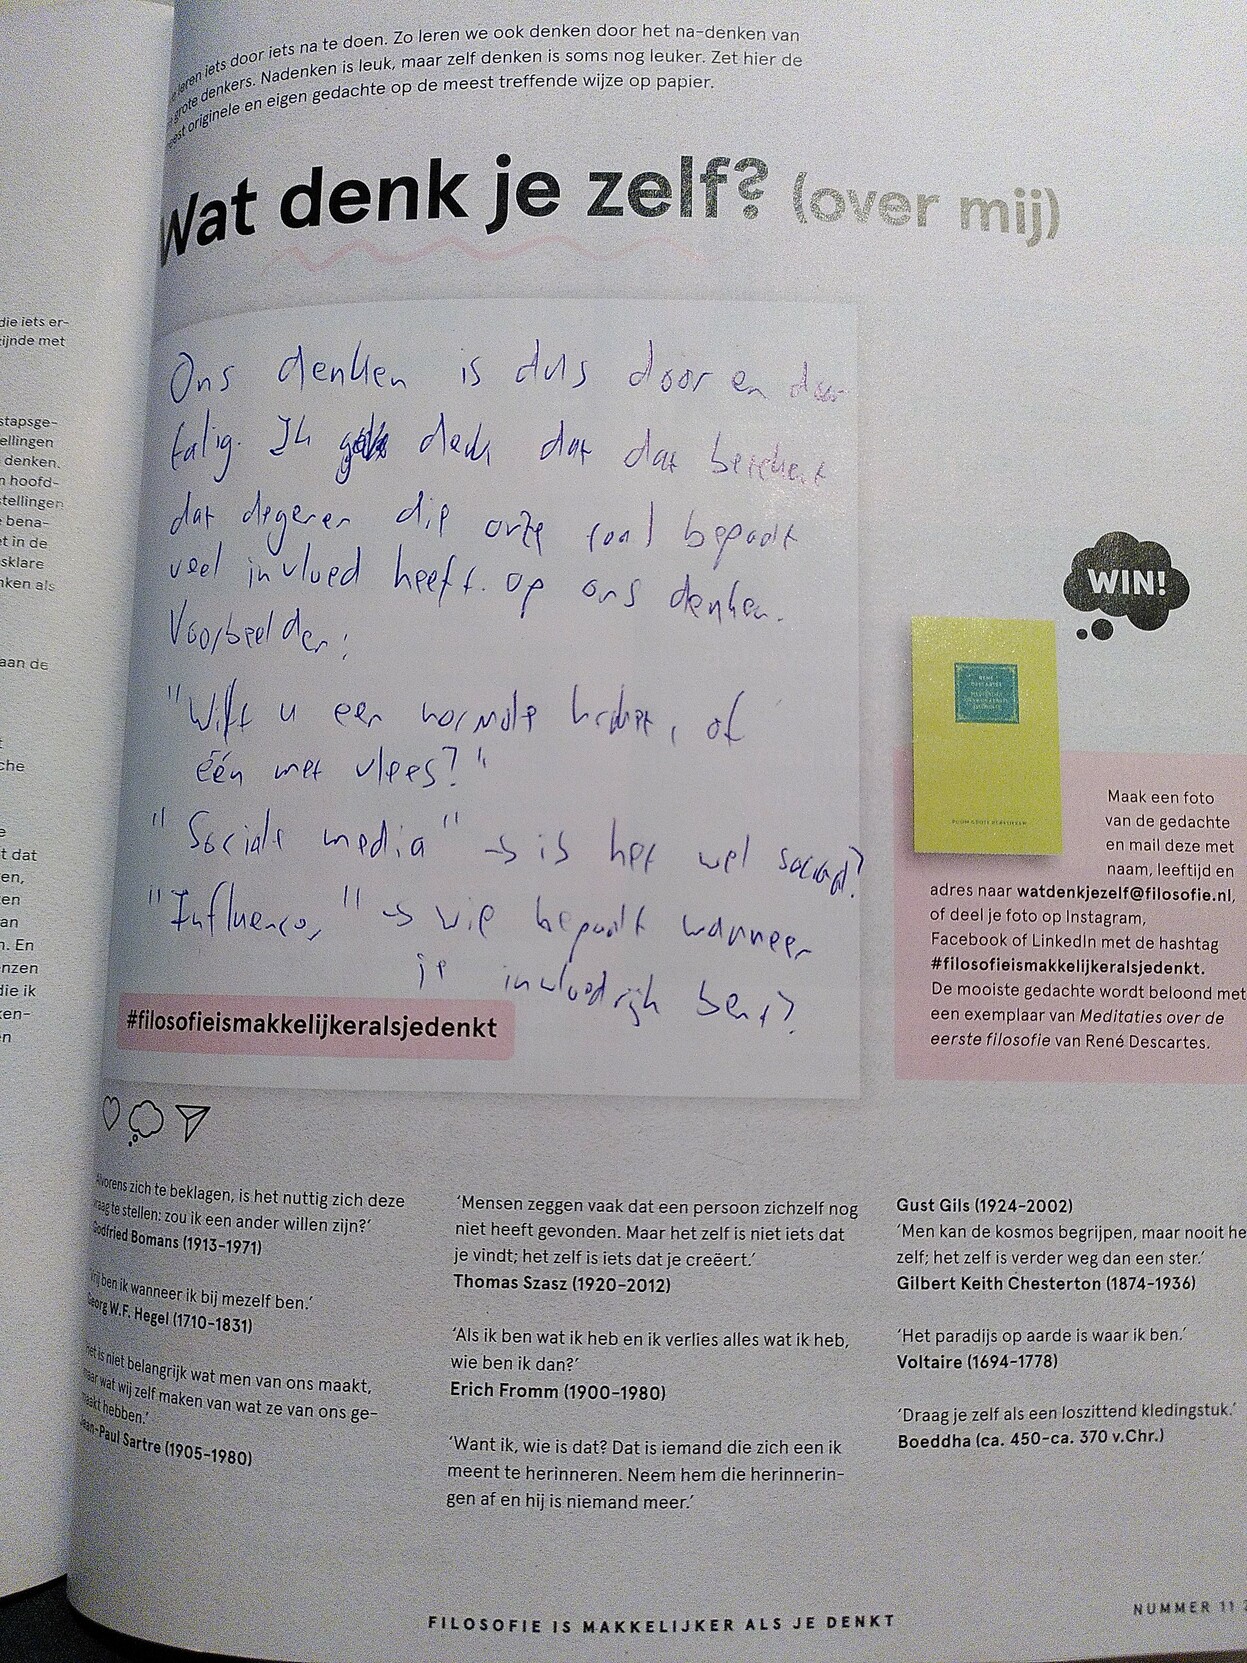 die iets er-
zijnde met
stapsge-
ellingen
denken.
n hoofd-
stellingen
bena-
et in de
sklare
nken als
aan de
che
t dat
en,
en
an
n. En
nzen
die ik
ken-
n
leren iets door iets na te doen. Zo leren we ook denken door het na-denken van
grote denkers. Nadenken is leuk, maar zelf denken is soms nog leuker. Zet hier de
eest originele en eigen gedachte op de meest treffende wijze op papier.
Wat denk je zelf? (over mij)
Ons denken is dus door en door
talig. Ik denk dat dat betekent
dat degenen die onze taal bepaalt
veel invloed heeft op ons denken.
Voorbeelden:
"Wilt u een normale kroket, of
één met vlees?"
"Sociale media" → is het wel sociaal?
"Influencer" → wie bepaalt wanneer
je invloedrijk bent?
#filosofieismakkelijkeralsjedenkt
WIN!
RENÉ
DESCARTES
Maak een foto
van de gedachte
en mail deze met
naam, leeftijd en
adres naar watdenkjezelf@filosofie.nl,
of deel je foto op Instagram,
Facebook of LinkedIn met de hashtag
#filosofieismakkelijkeralsjedenkt.
De mooiste gedachte wordt beloond met
een exemplaar van Meditaties over de
eerste filosofie van René Descartes.
Alvorens zich te beklagen, is het nuttig zich deze
vraag te stellen: zou ik een ander willen zijn?'
Godfried Bomans (1913-1971)
'Vrij ben ik wanneer ik bij mezelf ben.'
Georg W.F. Hegel (1710-1831)
Het is niet belangrijk wat men van ons maakt,
maar wat wij zelf maken van wat ze van ons ge-
maakt hebben.'
Jean-Paul Sartre (1905-1980)
'Mensen zeggen vaak dat een persoon zichzelf nog
niet heeft gevonden. Maar het zelf is niet iets dat
je vindt; het zelf is iets dat je creëert.'
Thomas Szasz (1920-2012)
'Als ik ben wat ik heb en ik verlies alles wat ik heb,
wie ben ik dan?'
Erich Fromm (1900-1980)
'Want ik, wie is dat? Dat is iemand die zich een ik
meent te herinneren. Neem hem die herinnerin-
gen af en hij is niemand meer.'
Gust Gils (1924-2002)
'Men kan de kosmos begrijpen, maar nooit he
zelf; het zelf is verder weg dan een ster.'
Gilbert Keith Chesterton (1874-1936)
'Het paradijs op aarde is waar ik ben.'
Voltaire (1694-1778)
'Draag je zelf als een loszittend kledingstuk.'
Boeddha (ca. 450-ca. 370 v.Chr.)
FILOSOFIE IS MAKKELIJKER ALS JE DENKT
NUMMER 11